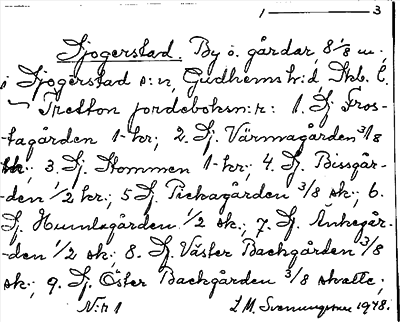 1 ——— 3
Sjogerstad. By o. gårdar, 8 1/8 m.
i Sjogerstad s:n, Gudhems h:d, Skb. l.
— Tretton jordeboksn:r: 1. Sj. Fros-
tagården 1 kr; 2. Sj. Värmagården 3/8
sk; 3. Sj. Stommen 1 kr; 4. Sj. Bissgår-
den 1/2 kr; 5 Sj. Pickagården 3/8 sk; 6.
Sj. Hunnlagården 1/2 sk; 7. Sj. Änkegår-
den 1/2 sk; 8. Sj. Väster Backgården 3/8
sk; 9. Sj. Öster Backgården 3/8 skatte;
N:r 1 L M. Svenungsson 1948.